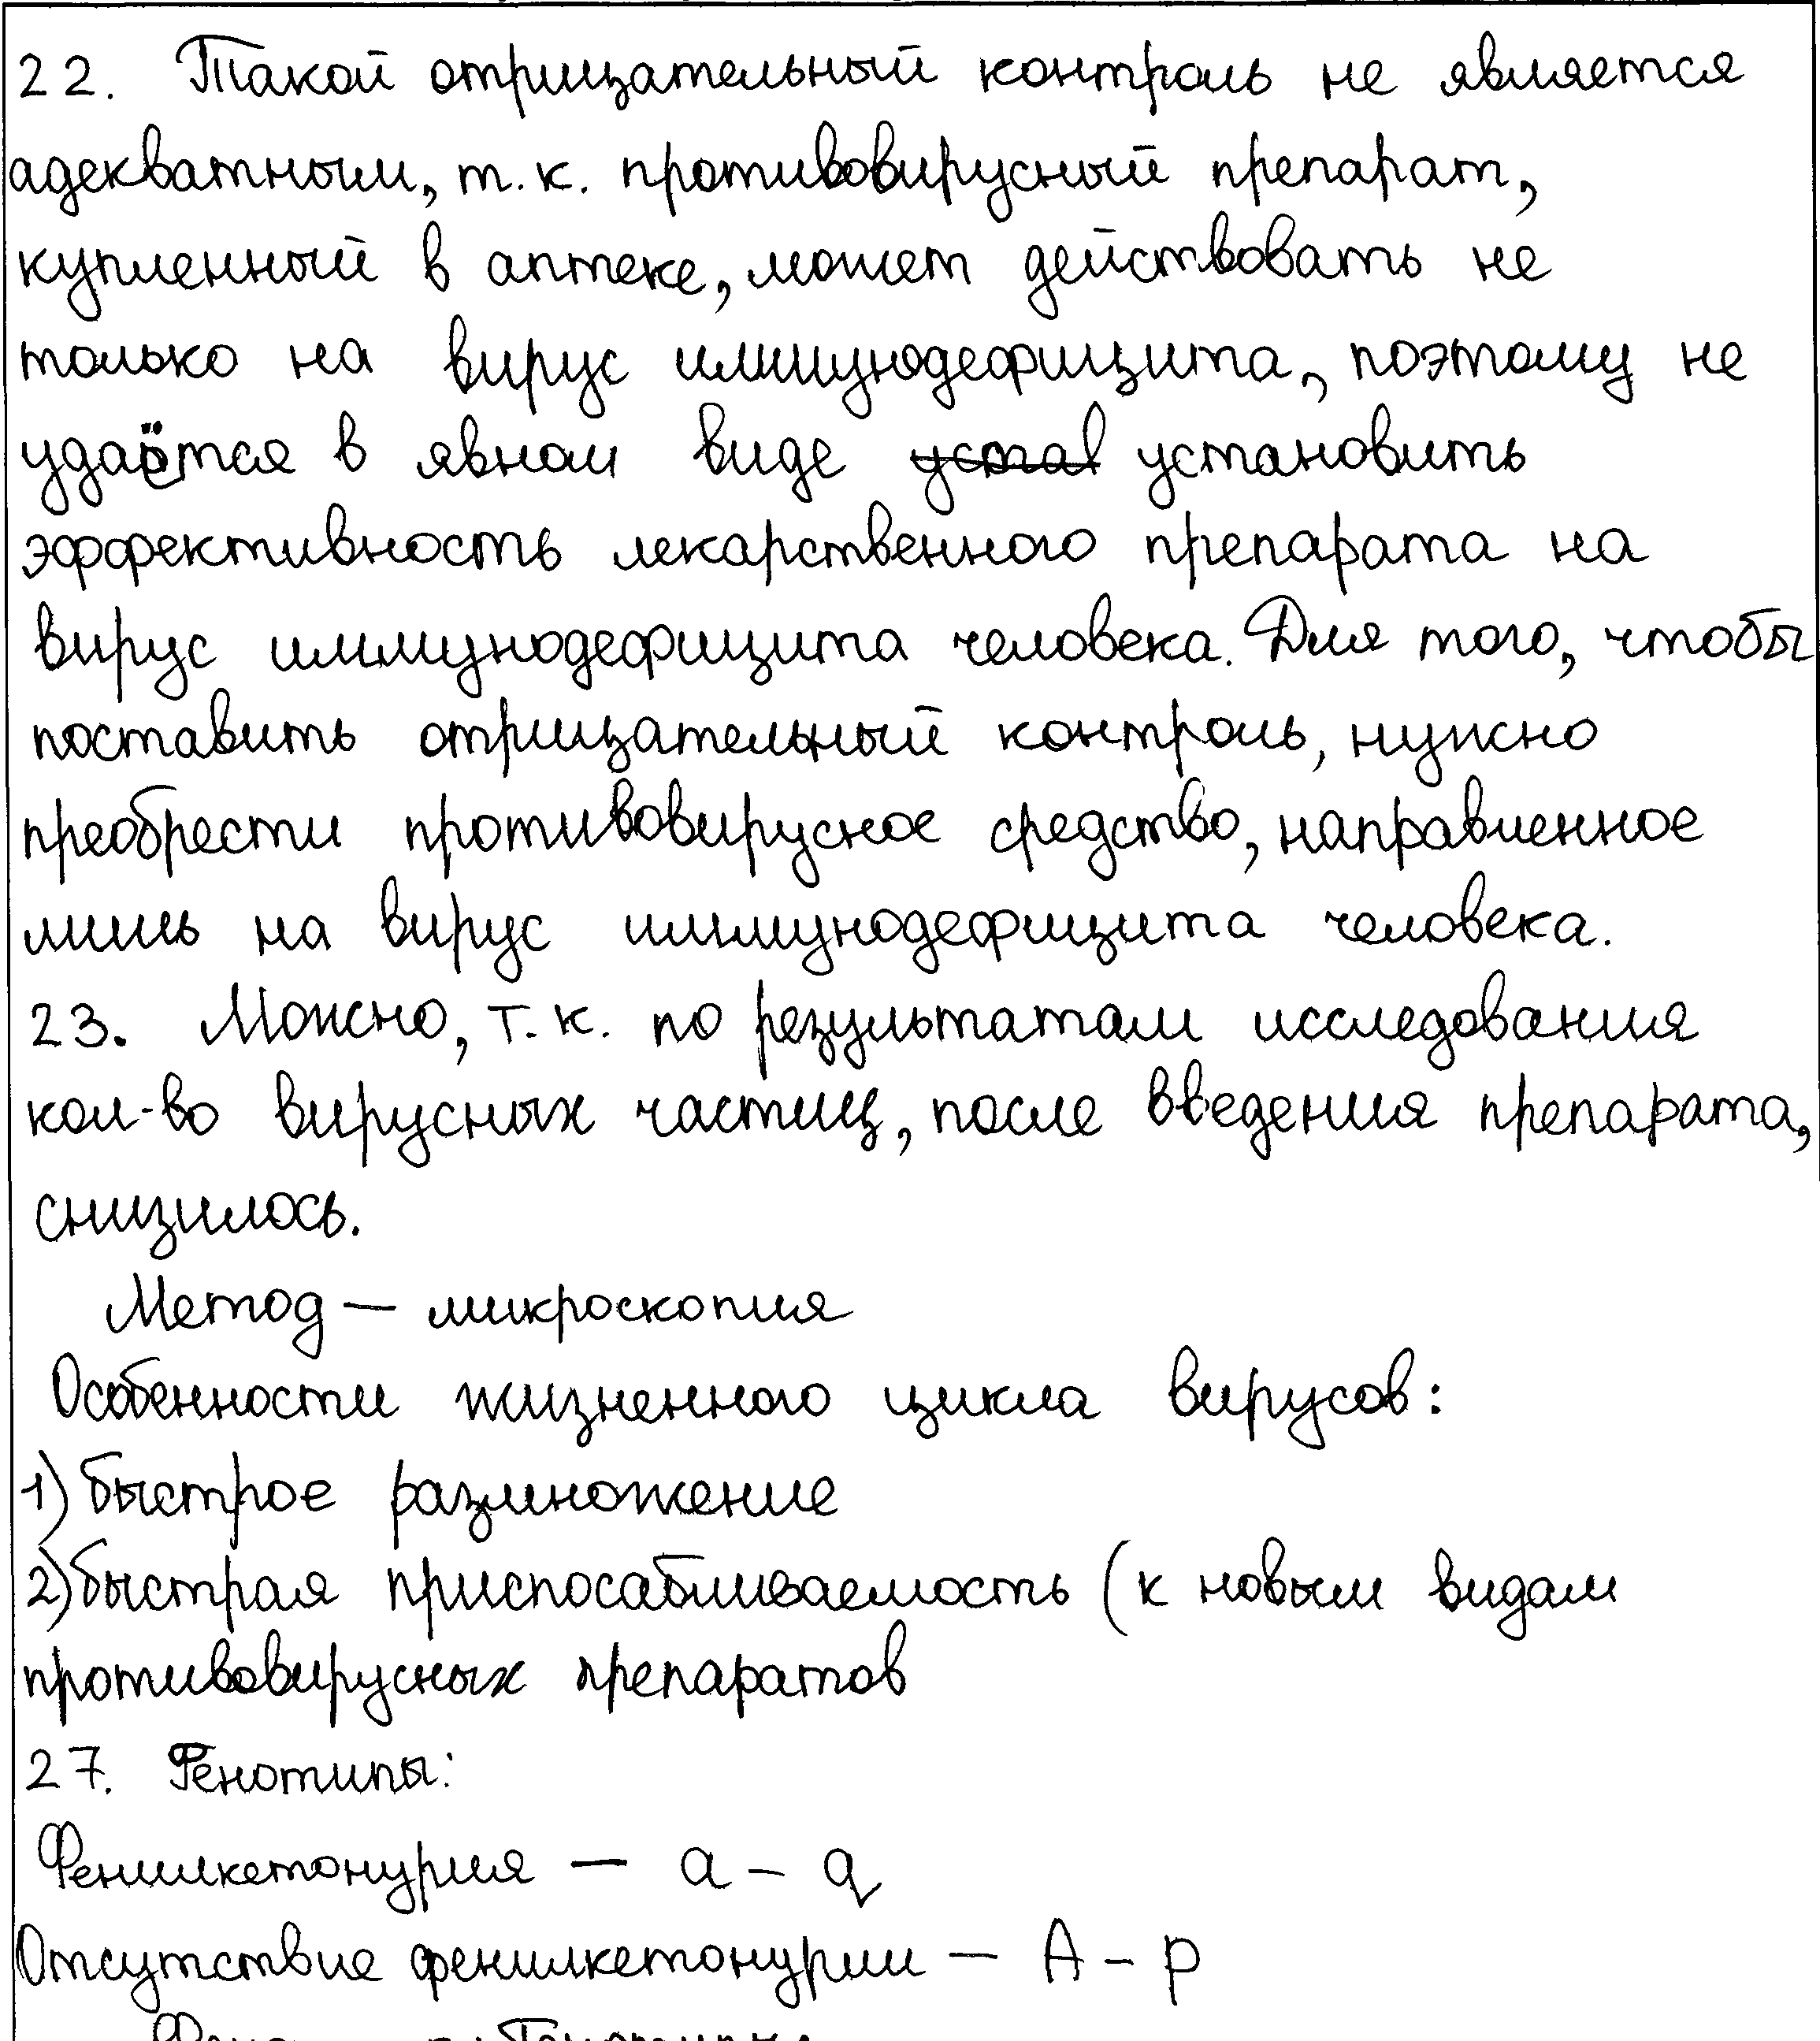 22. Такой отрицательный контроль не является
адекватным, т.к. противовирусный препарат,
купленный в аптеке, может действовать не
только на вирус иммунодефицита, поэтому не
удаётся в явном виде устав установить
эффективность лекарственного препарата на
вирус иммунодефицита человека. Для того, чтобы
поставить отрицательный контроль, нужно
преобрести противовирусное средство, направленное
лишь на вирус иммунодефицита человека.
23. Можно, т.к. по результатам исследования
кол-во вирусных частиц, после введения препарата,
снизилось.
Метод — микроскопия
Особенности жизненного цикла вирусов:
1) быстрое размножение
2) быстрая приспосабливаемость (к новым видам
противовирусных препаратов
27. Фенотипы:
Фенилкетонурия — a – q
Отсутствие фенилкетонурии — A – p